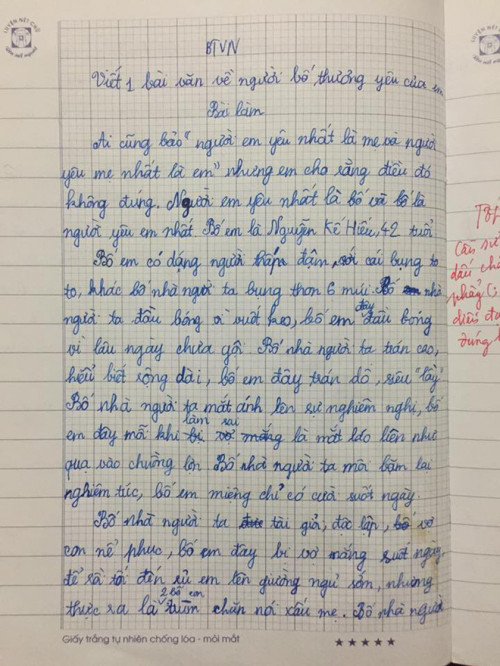 BTVN
Viết 1 bài văn về người bố thương yêu của em
Bài làm
Ai cũng bảo "người em yêu nhất là mẹ và người
yêu mẹ nhất là em" nhưng em cho rằng điều đó
không đúng. Người em yêu nhất là bố và bố là
người yêu em nhất. Bố em là Nguyễn Kế Hiếu, 42 tuổi
Bố em có dáng người thấp đậm, với cái bụng to
to, khác bố nhà người ta bụng thon 6 múi. Bố nhà
người ta đầu bóng vì vuốt keo, bố em đây đầu bóng
vì lâu ngày chưa gội. Bố nhà người ta trán cao,
hiểu biết rộng dài, bố em đây trán dô, siêu "lầy"
Bố nhà người ta mắt ánh lên sự nghiêm nghị, bố
em đây mỗi khi làm sai bị vợ mắng là mắt láo liên như
quạ vào chuồng lợn. Bố nhà người ta môi bặm lại
nghiêm túc, bố em miệng chỉ có cười suốt ngày.
Bố nhà người ta tài giỏi, độc lập, vợ
con nể phục, bố em đây bị vợ mắng suốt ngày
để rồi tối đến rủ em lên giường ngủ sớm, nhưng
thực ra là 2 bố con trùm chăn nói xấu mẹ. Bố nhà người
Giấy trắng tự nhiên chống lóa - mỏi mắt
LUYỆN NÉT CHỮ
dấu